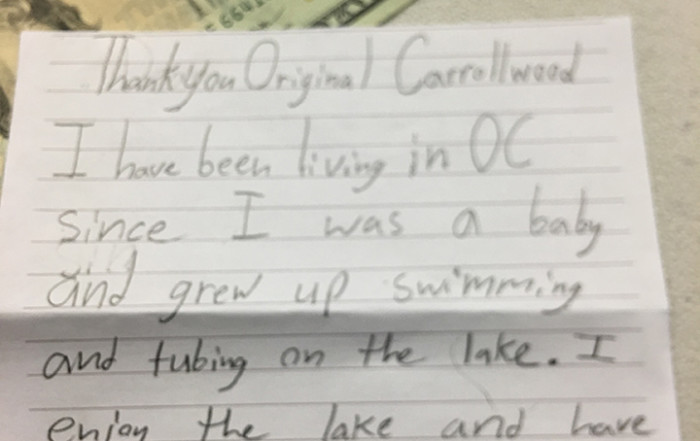 Thank you Original Carrollwood
I have been living in OC
since I was a baby
and grew up swimming
and tubing on the lake. I
enjoy the lake and have